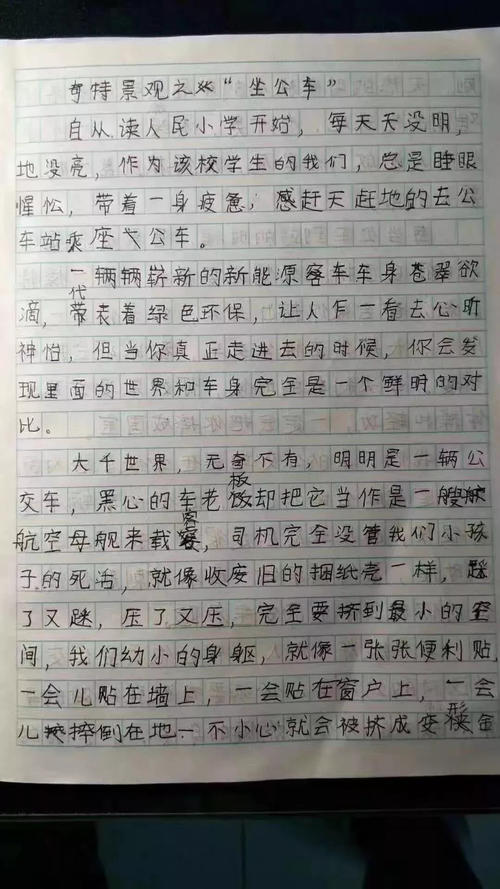 奇特景观之“坐公车”
自从读人民小学开始，每天天没明，
地没亮，作为该校学生的我们，总是睡眼
惺忪，带着一身疲惫，感赶天赶地的去公
车站乘座公车。
一辆辆崭新的新能源客车车身苍翠欲
滴，带代表着绿色环保，让人乍一看去心旷
神怡，但当你真正走进去的时候，你会发
现里面的世界和车身完全是一个鲜明的对
比。
大千世界，无奇不有，明明是一辆公
交车，黑心的车老板却把它当作是一艘
航空母舰来载客，司机完全没管我们小孩
子的死活，就像收废旧的捆纸壳一样，踩
了又踩，压了又压，完全要挤到最小的空
间，我们幼小的身躯，就像一张张便利贴，
一会儿贴在墙上，一会贴在窗户上，一会
儿摔倒在地一不小心就会被挤成变形金